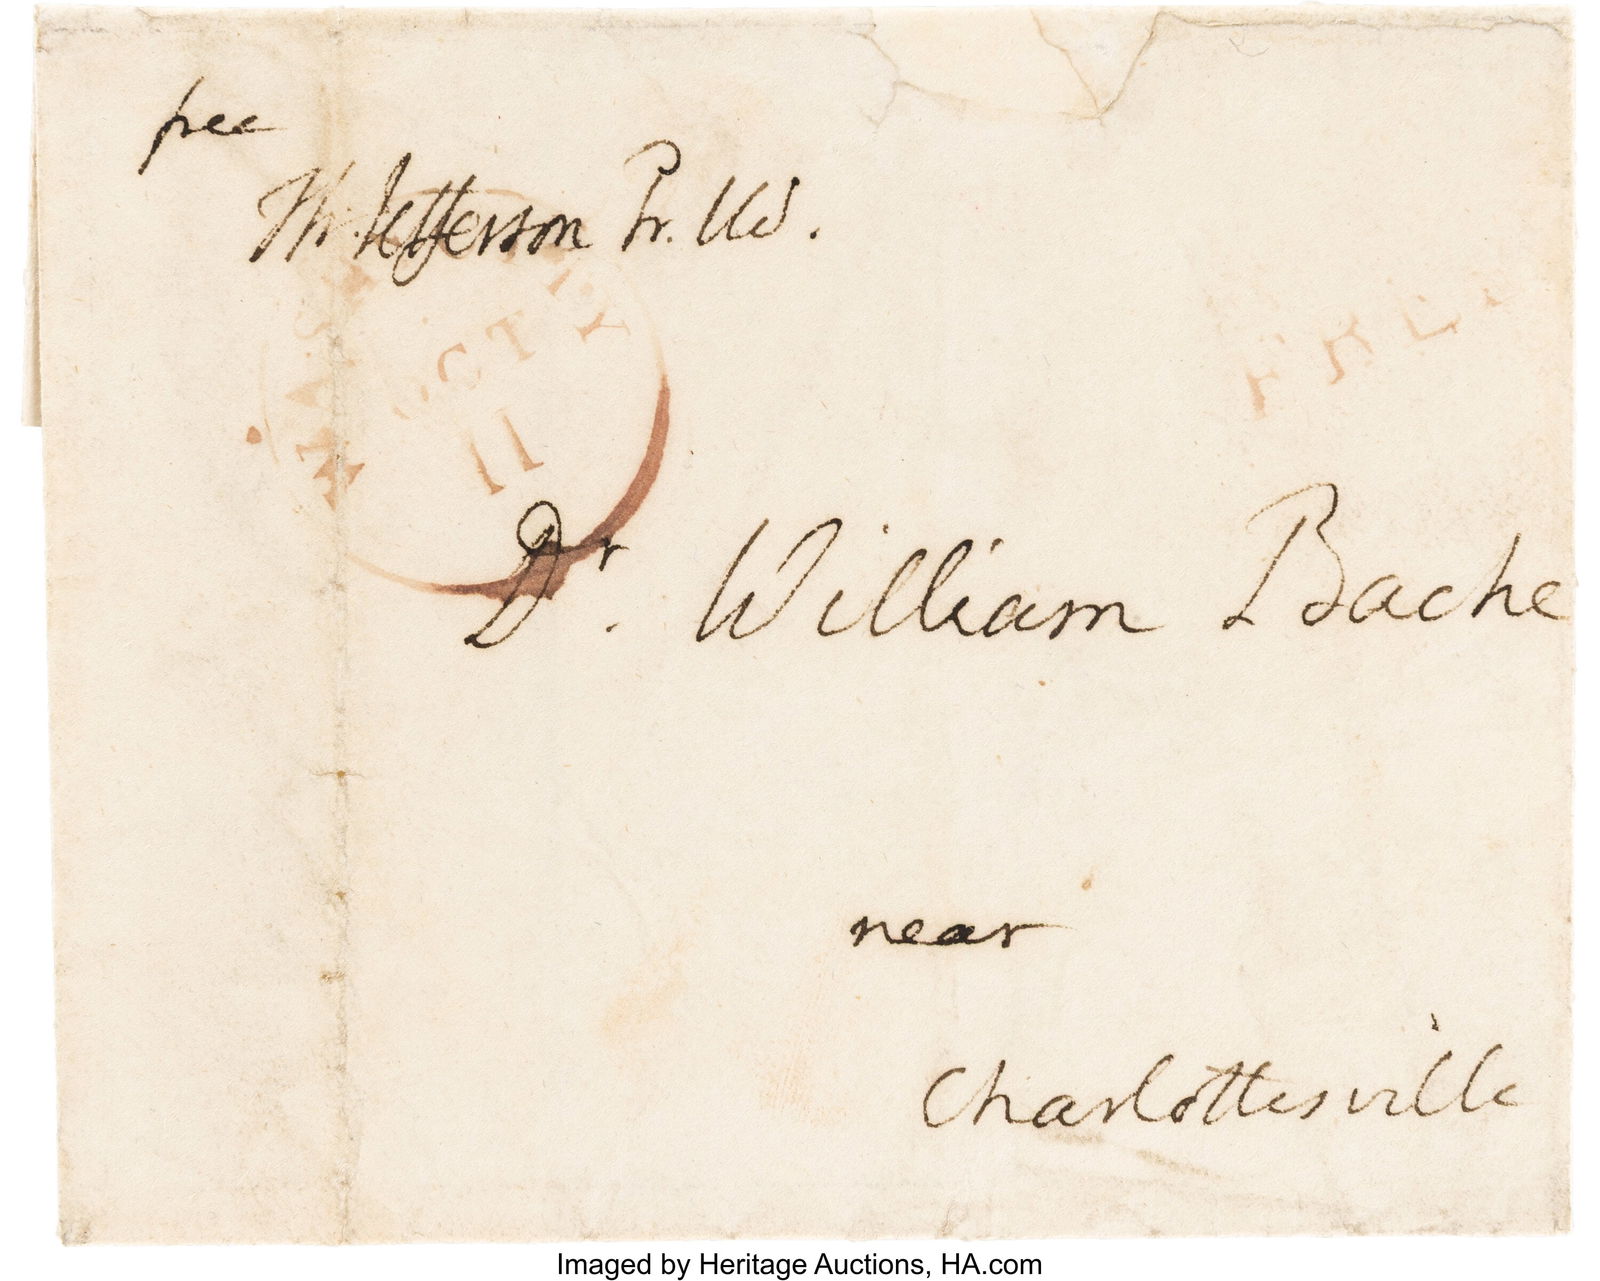 free
Th: Jefferson Pr. US.
OCT
11
FREE
Dr. William Bache
near
Charlottesville
Imaged by Heritage Auctions, HA.com